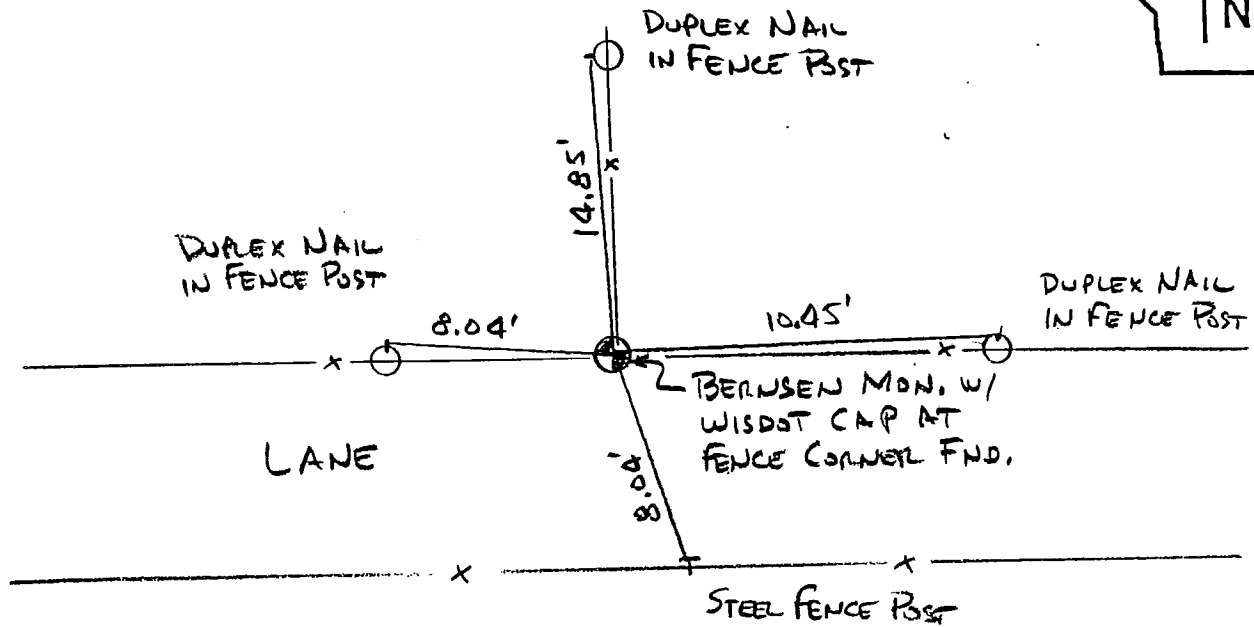 DUPLEX NAIL
IN FENCE POST
N
14.85'
DUPLEX NAIL
IN FENCE POST
8.04'
10.45'
DUPLEX NAIL
IN FENCE POST
BERNSEN MON. W/
WISDOT CAP AT
FENCE CORNER FND.
LANE
8.04'
STEEL FENCE POST